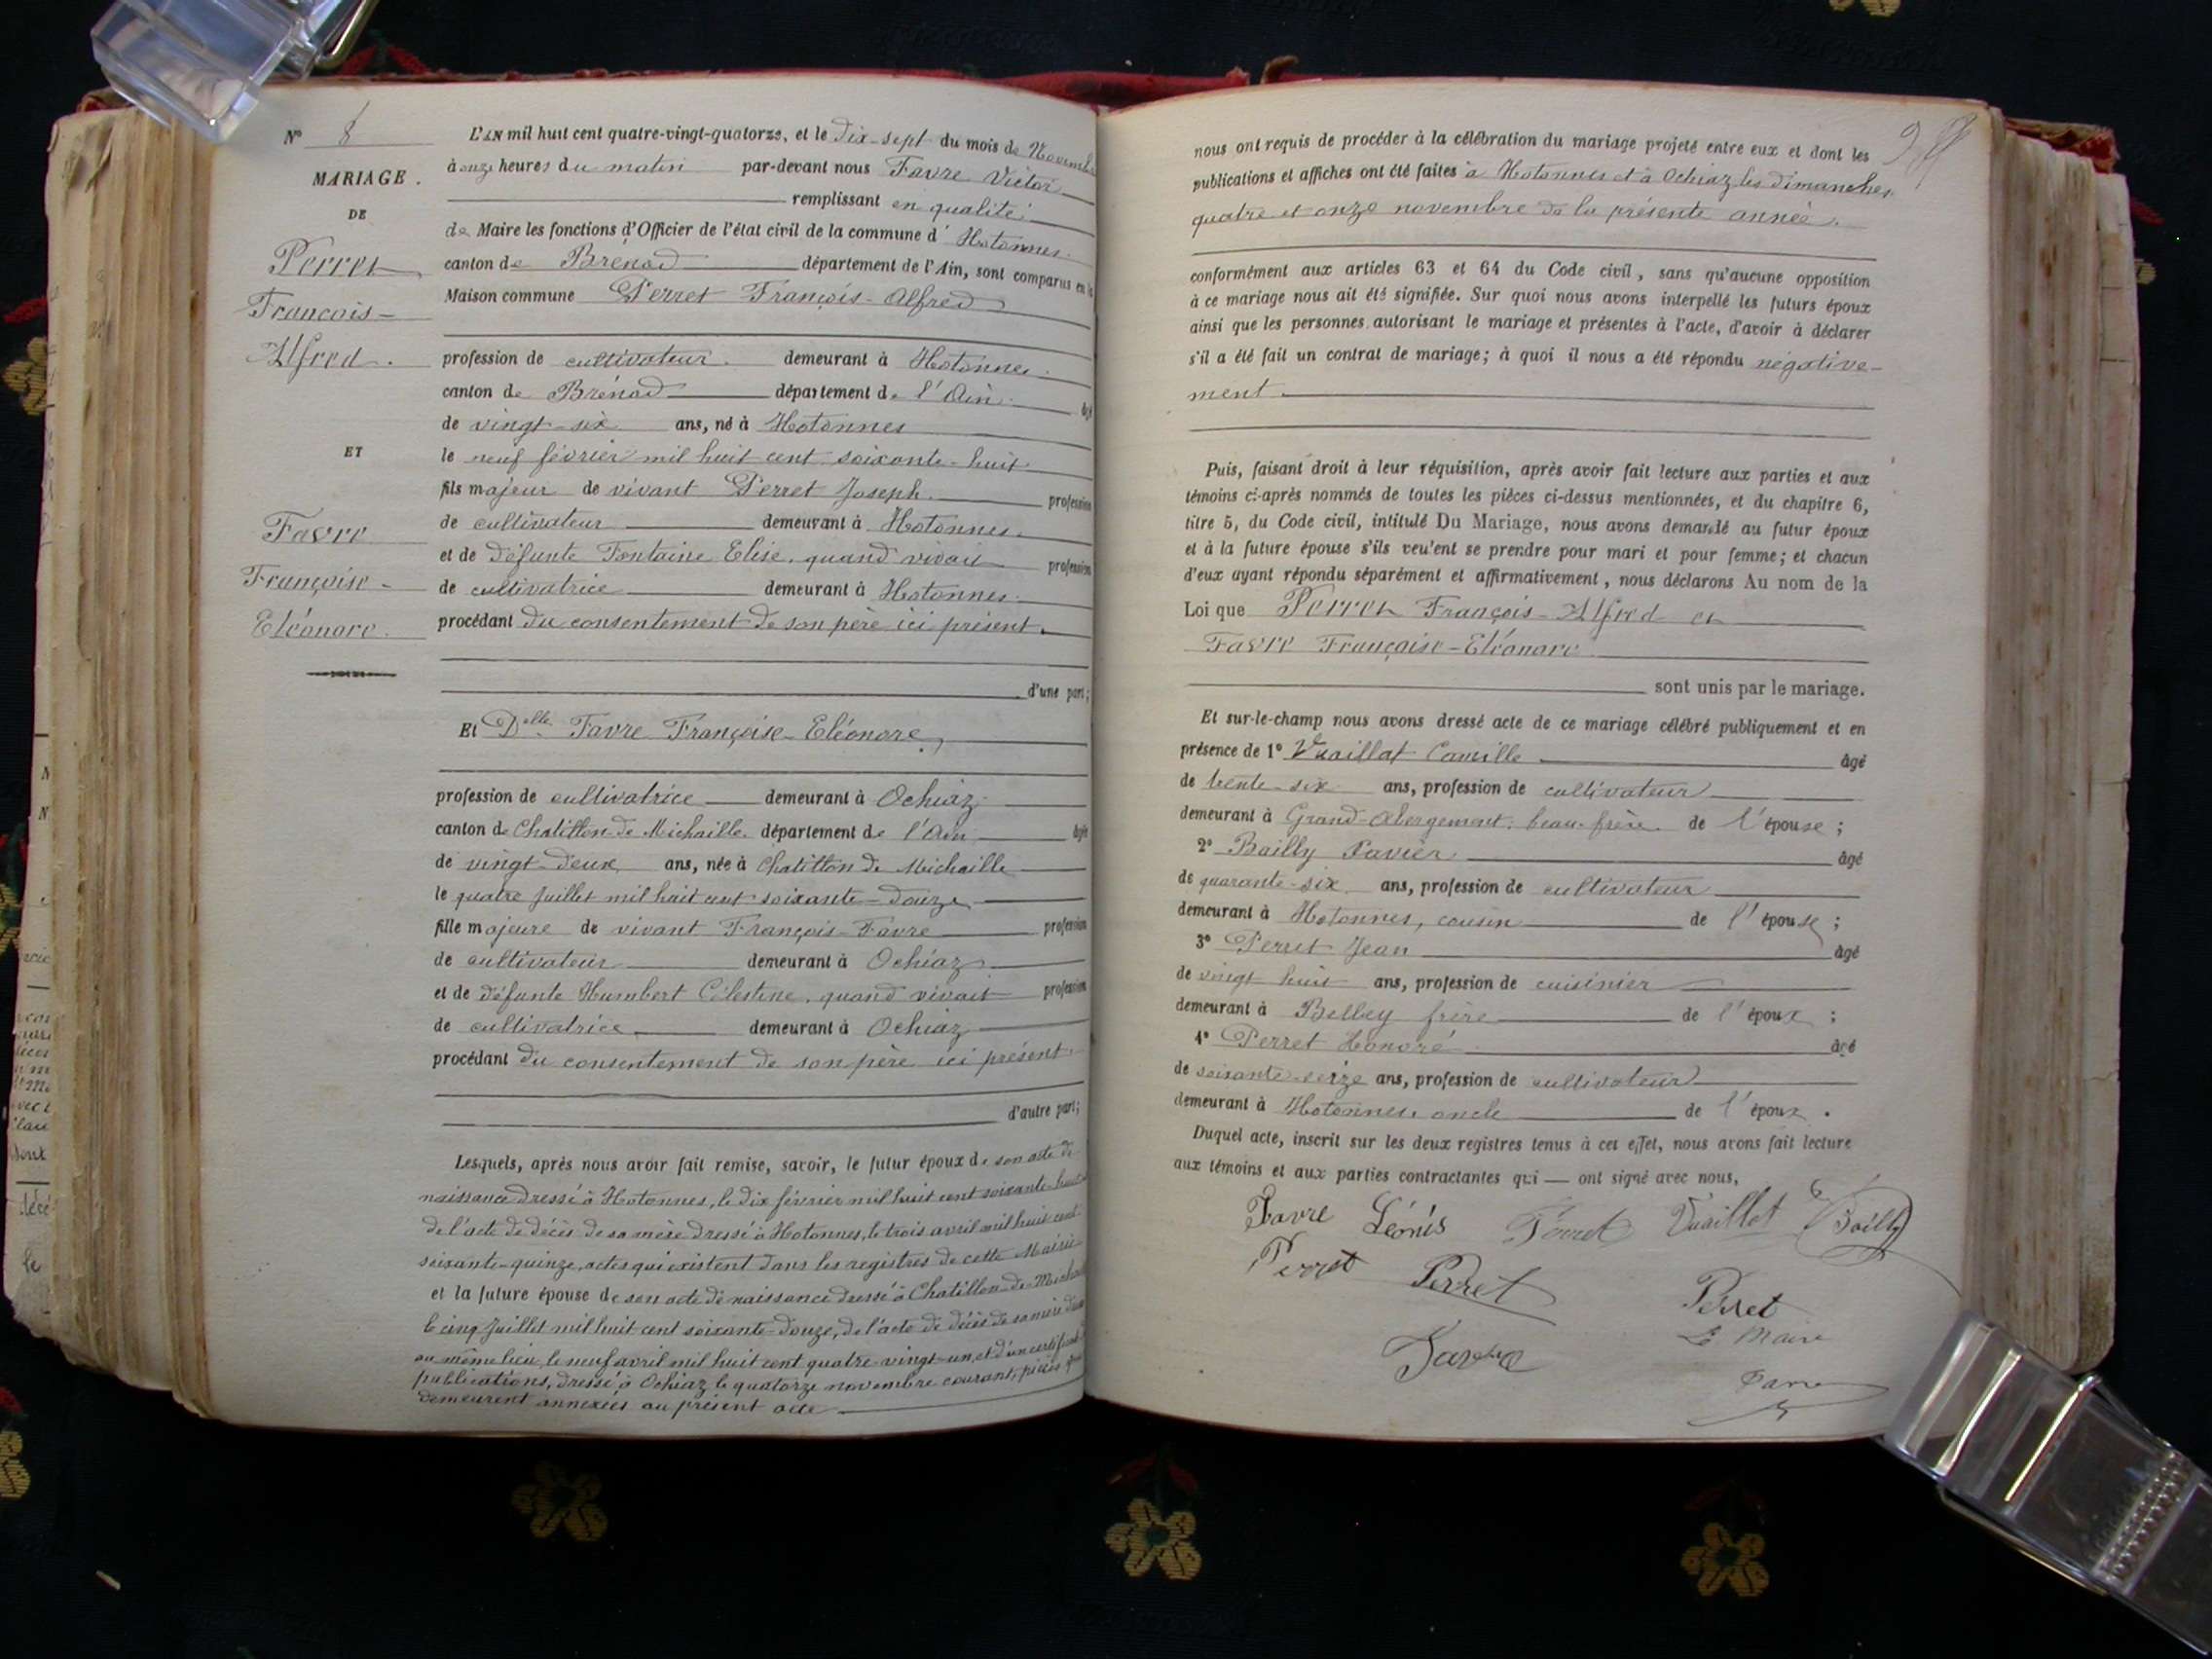 N° 8
MARIAGE.
DE
Perret
François-
Alfred.
ET
Favre
Françoise-
Eléonore.
L'AN mil huit cent quatre-vingt-quatorze, et le dix-sept du mois de Novembre
à onze heures du matin par-devant nous Favre Victor
remplissant en qualité
de Maire les fonctions d'Officier de l'état civil de la commune d' Hotonnes
canton de Brénod département de l'Ain, sont comparus en la
Maison commune Perret François-Alfred
profession de cultivateur demeurant à Hotonnes
canton de Brénod département de l'Ain âgé
de vingt-six ans, né à Hotonnes
le neuf février mil huit cent soixante-huit
fils majeur de vivant Perret Joseph profession
de cultivateur demeurant à Hotonnes
et de défunte Fontaine Elise, quand vivait profession
de cultivatrice demeurant à Hotonnes
procédant du consentement de son père ici présent.
d'une part;
Et Delle Favre Françoise-Eléonore,
profession de cultivatrice demeurant à Ochiaz
canton de Chatillon-de-Michaille département de l'Ain âgée
de vingt-deux ans, née à Chatillon de Michaille
le quatre Juillet mil huit cent soixante-douze
fille majeure de vivant François Favre profession
de cultivateur demeurant à Ochiaz
et de défunte Humbert Célestine, quand vivait profession
de cultivatrice demeurant à Ochiaz
procédant du consentement de son père ici présent.
d'autre part;
Lesquels, après nous avoir fait remise, savoir, le futur époux de son acte de
naissance dressé à Hotonnes, le dix février mil huit cent soixante-huit
de l'acte de décès de sa mère dressé à Hotonnes, le trois avril mil huit cent
soixante-quinze, actes qui existent dans les registres de cette Mairie
et la future épouse de son acte de naissance dressé à Chatillon-de-Michaille
le cinq Juillet mil huit cent soixante-douze, de l'acte de décès de sa mère dressé
au même lieu, le neuf avril mil huit cent quatre-vingt-un, et d'un certificat de
publications, dressé à Ochiaz le quatorze novembre courant, pièces qui
demeurent annexées au présent acte
nous ont requis de procéder à la célébration du mariage projeté entre eux et dont les
publications et affiches ont été faites à Hotonnes et à Ochiaz les dimanches
quatre et onze novembre de la présente année.
conformément aux articles 63 et 64 du Code civil, sans qu'aucune opposition
à ce mariage nous ait été signifiée. Sur quoi nous avons interpellé les futurs époux
ainsi que les personnes autorisant le mariage et présentes à l'acte, d'avoir à déclarer
s'il a été fait un contrat de mariage; à quoi il nous a été répondu négative-
ment.
Puis, faisant droit à leur réquisition, après avoir fait lecture aux parties et aux
témoins ci-après nommés de toutes les pièces ci-dessus mentionnées, et du chapitre 6,
titre 5, du Code civil, intitulé Du Mariage, nous avons demandé au futur époux
et à la future épouse s'ils veulent se prendre pour mari et pour femme; et chacun
d'eux ayant répondu séparément et affirmativement, nous déclarons Au nom de la
Loi que Perret François-Alfred et
Favre Françoise-Eléonore
sont unis par le mariage.
Et sur-le-champ nous avons dressé acte de ce mariage célébré publiquement et en
présence de 1° Vuaillat Camille âgé
de trente-six ans, profession de cultivateur
demeurant à Grand-Abergement, beau-frère de l'épouse;
2° Bailly Xavier âgé
de quarante-six ans, profession de cultivateur
demeurant à Hotonnes, cousin de l'épouse;
3° Perret Jean âgé
de vingt huit ans, profession de cuisinier
demeurant à Belley frère de l'époux;
4° Perret Honoré âgé
de soixante-seize ans, profession de cultivateur
demeurant à Hotonnes, oncle de l'époux.
Duquel acte, inscrit sur les deux registres tenus à cet effet, nous avons fait lecture
aux témoins et aux parties contractantes qui — ont signé avec nous,
Favre Léonis Perret Vuaillat Bailly
Perret Perret Perret
Le Maire
Favre Favre